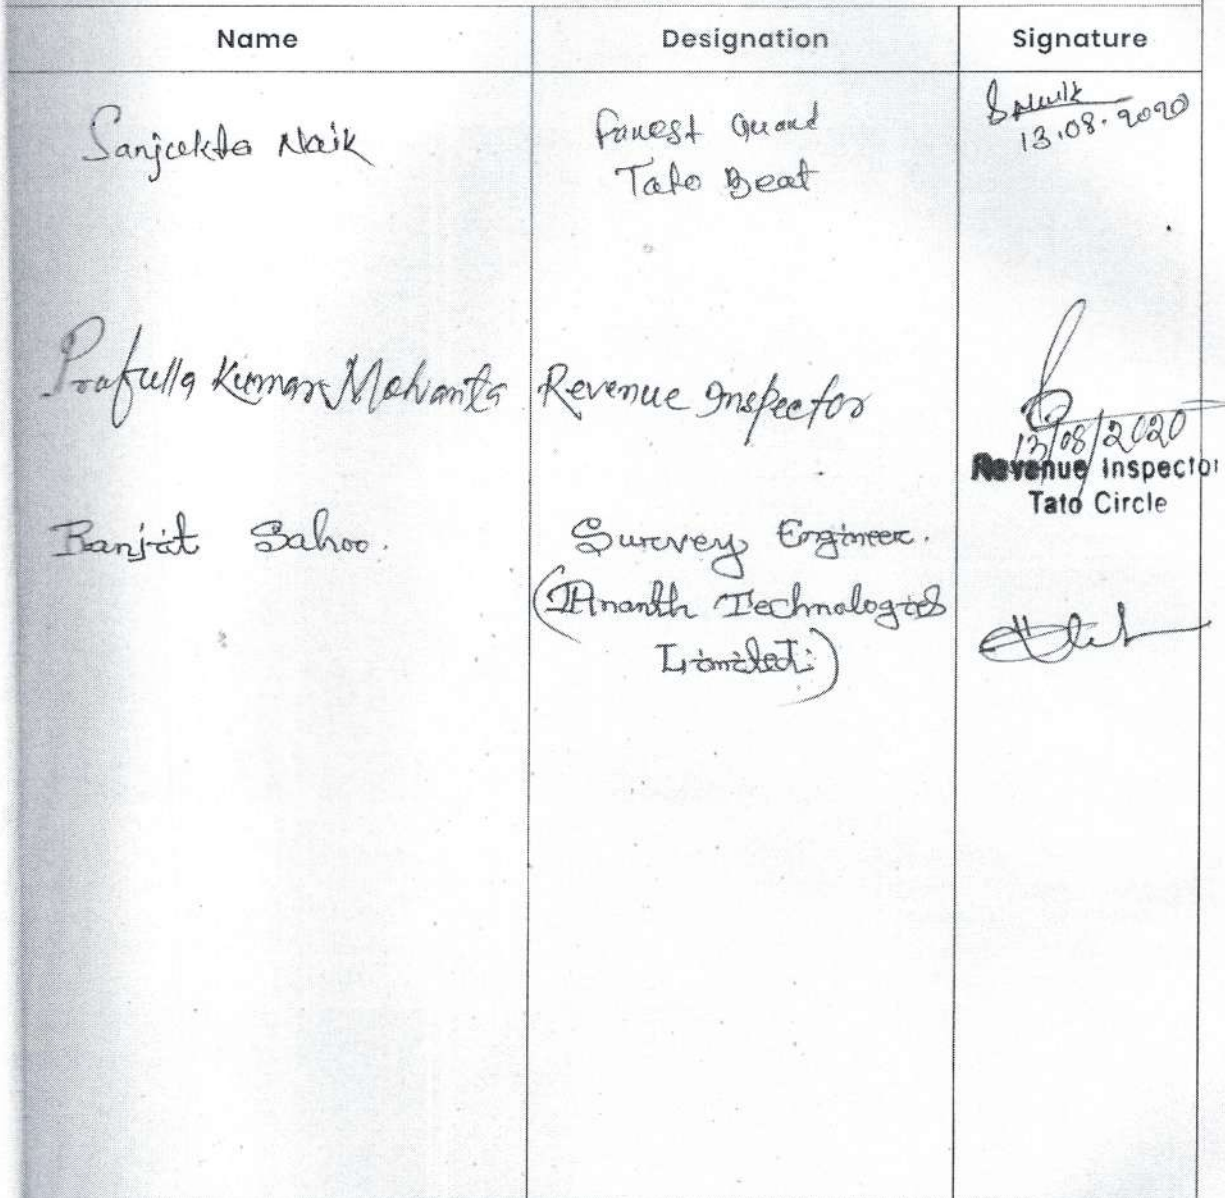 Name Designation Signature
Sanjukta Naik Forest Guard
Tato Beat
13.08.2020
Prafulla Kumar Mohanta Revenue Inspector
13/08/2020
Revenue Inspector
Tato Circle
Ranjit Sahoo. Survey Engineer.
(Ananth Technologies
Limited.)